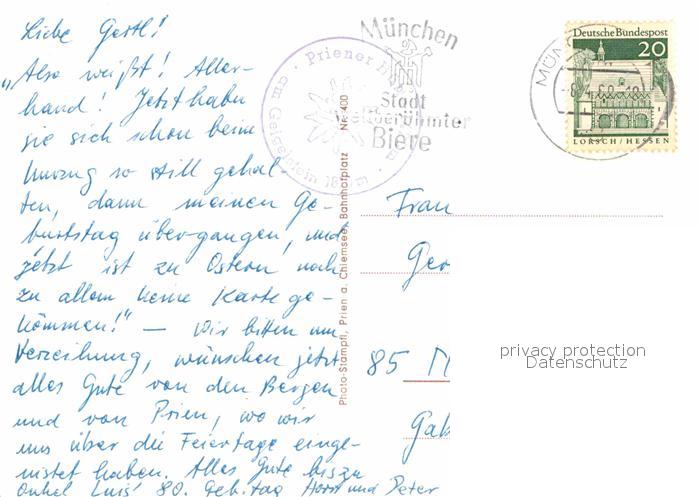 Liebe Gertl!
„Also weißt! Aller-
hand! Jetzt haben
sie sich schon beim
Umzug so still gehal-
ten, dann meinen Ge-
burtstag übergangen, und
jetzt ist zu Ostern noch
zu allem keine Karte ge-
kommen!" – Wir bitten um
Verzeihung, wünschen jetzt
alles Gute von den Bergen
und von Prien, wo wir
uns über die Feiertage einge-
nistet haben. Alles Gute bis zu
Onkel Luis' 80. Geb.tag Horst und Peter
Priener
am Geigelstein
München
Stadt
weltberühmter
Biere
MÜN
Deutsche Bundespost
20
LORSCH/HESSEN
Photo-Stampfl, Prien a. Chiemsee, Bahnhofplatz Nr. 400
Frau
Ger
85 M
Gab
privacy protection
Datenschutz